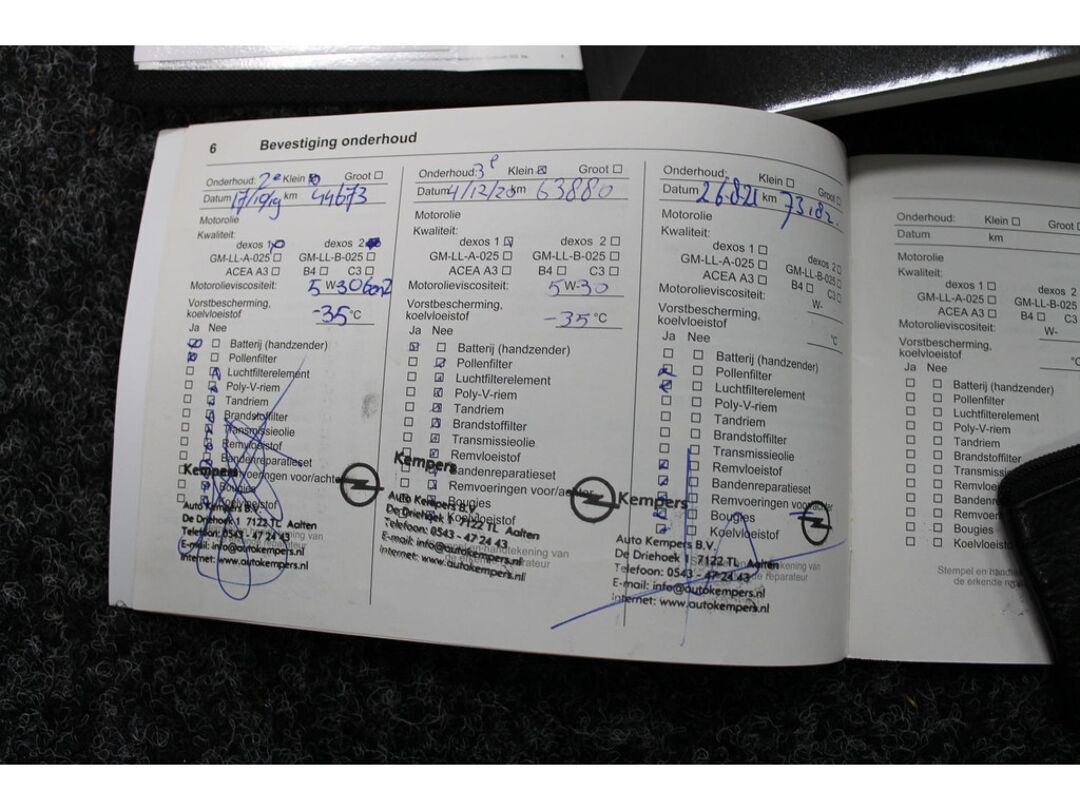 6 Bevestiging onderhoud
Onderhoud: 2e Klein Groot
Datum 17/10/19 km 44673
Motorolie
Kwaliteit:
dexos 1 dexos 2
GM-LL-A-025 GM-LL-B-025
ACEA A3 B4 C3
Motorolieviscositeit: 5 W-30
Vorstbescherming,
koelvloeistof -35 °C
Ja Nee
Batterij (handzender)
Pollenfilter
Luchtfilterelement
Poly-V-riem
Tandriem
Brandstoffilter
Transmissieolie
Remvloeistof
Bandenreparatieset
Remvoeringen voor/achter
Bougies
Koelvloeistof
Kempers
Auto Kempers B.V.
De Driehoek 1 7122 TL Aalten
Telefoon: 0543 - 47 24 43
E-mail: info@autokempers.nl
Internet: www.autokempers.nl
Onderhoud: 3e Klein Groot
Datum 4/12/20 km 63880
Motorolie
Kwaliteit:
dexos 1 dexos 2
GM-LL-A-025 GM-LL-B-025
ACEA A3 B4 C3
Motorolieviscositeit: 5 W-30
Vorstbescherming,
koelvloeistof -35 °C
Ja Nee
Batterij (handzender)
Pollenfilter
Luchtfilterelement
Poly-V-riem
Tandriem
Brandstoffilter
Transmissieolie
Remvloeistof
Bandenreparatieset
Remvoeringen voor/achter
Bougies
Koelvloeistof
Kempers
Auto Kempers B.V.
De Driehoek 1 7122 TL Aalten
Telefoon: 0543 - 47 24 43
E-mail: info@autokempers.nl
Internet: www.autokempers.nl
Onderhoud: Klein Groot
Datum 26.8.21 km 73.182
Motorolie
Kwaliteit:
dexos 1 dexos 2
GM-LL-A-025 GM-LL-B-025
ACEA A3 B4 C3
Motorolieviscositeit: W-
Vorstbescherming,
koelvloeistof °C
Ja Nee
Batterij (handzender)
Pollenfilter
Luchtfilterelement
Poly-V-riem
Tandriem
Brandstoffilter
Transmissieolie
Remvloeistof
Bandenreparatieset
Remvoeringen voor/achter
Bougies
Koelvloeistof
Kempers
Auto Kempers B.V.
De Driehoek 1 7122 TL Aalten
Telefoon: 0543 - 47 24 43
E-mail: info@autokempers.nl
Internet: www.autokempers.nl
Onderhoud: Klein Groot
Datum km
Motorolie
Kwaliteit:
dexos 1 dexos 2
GM-LL-A-025 GM-LL-B-025
ACEA A3 B4 C3
Motorolieviscositeit: W-
Vorstbescherming,
koelvloeistof °C
Ja Nee
Batterij (handzender)
Pollenfilter
Luchtfilterelement
Poly-V-riem
Tandriem
Brandstoffilter
Transmiss
Remvloei
Bandenre
Remvoer
Bougies
Koelvloeist
Stempel en handt
de erkende re